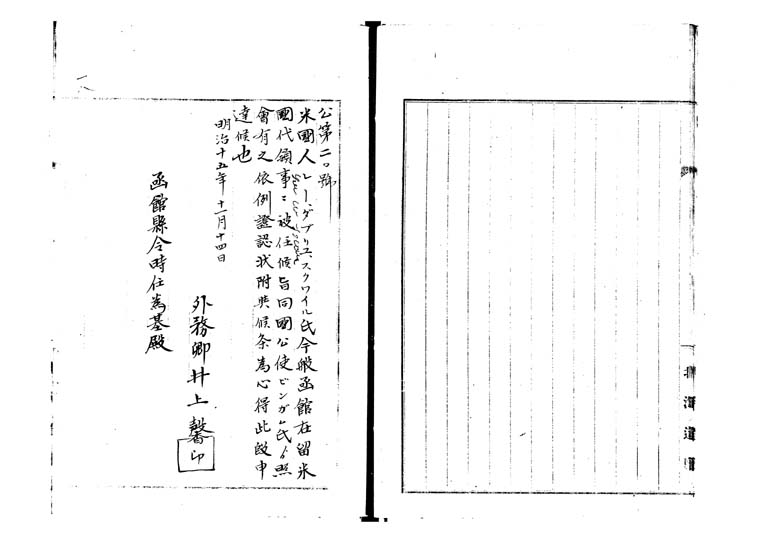 公第二〇號
米國人レー、ダブリユ、スクワイル氏今般函館在留米
國代領事ニ被任候旨同國公使ビンガム氏ゟ照
會有之依例證認状附與候条為心得此段申
達候也
明治十五年十一月十四日
外務卿井上馨 印
函館縣令時任為基殿